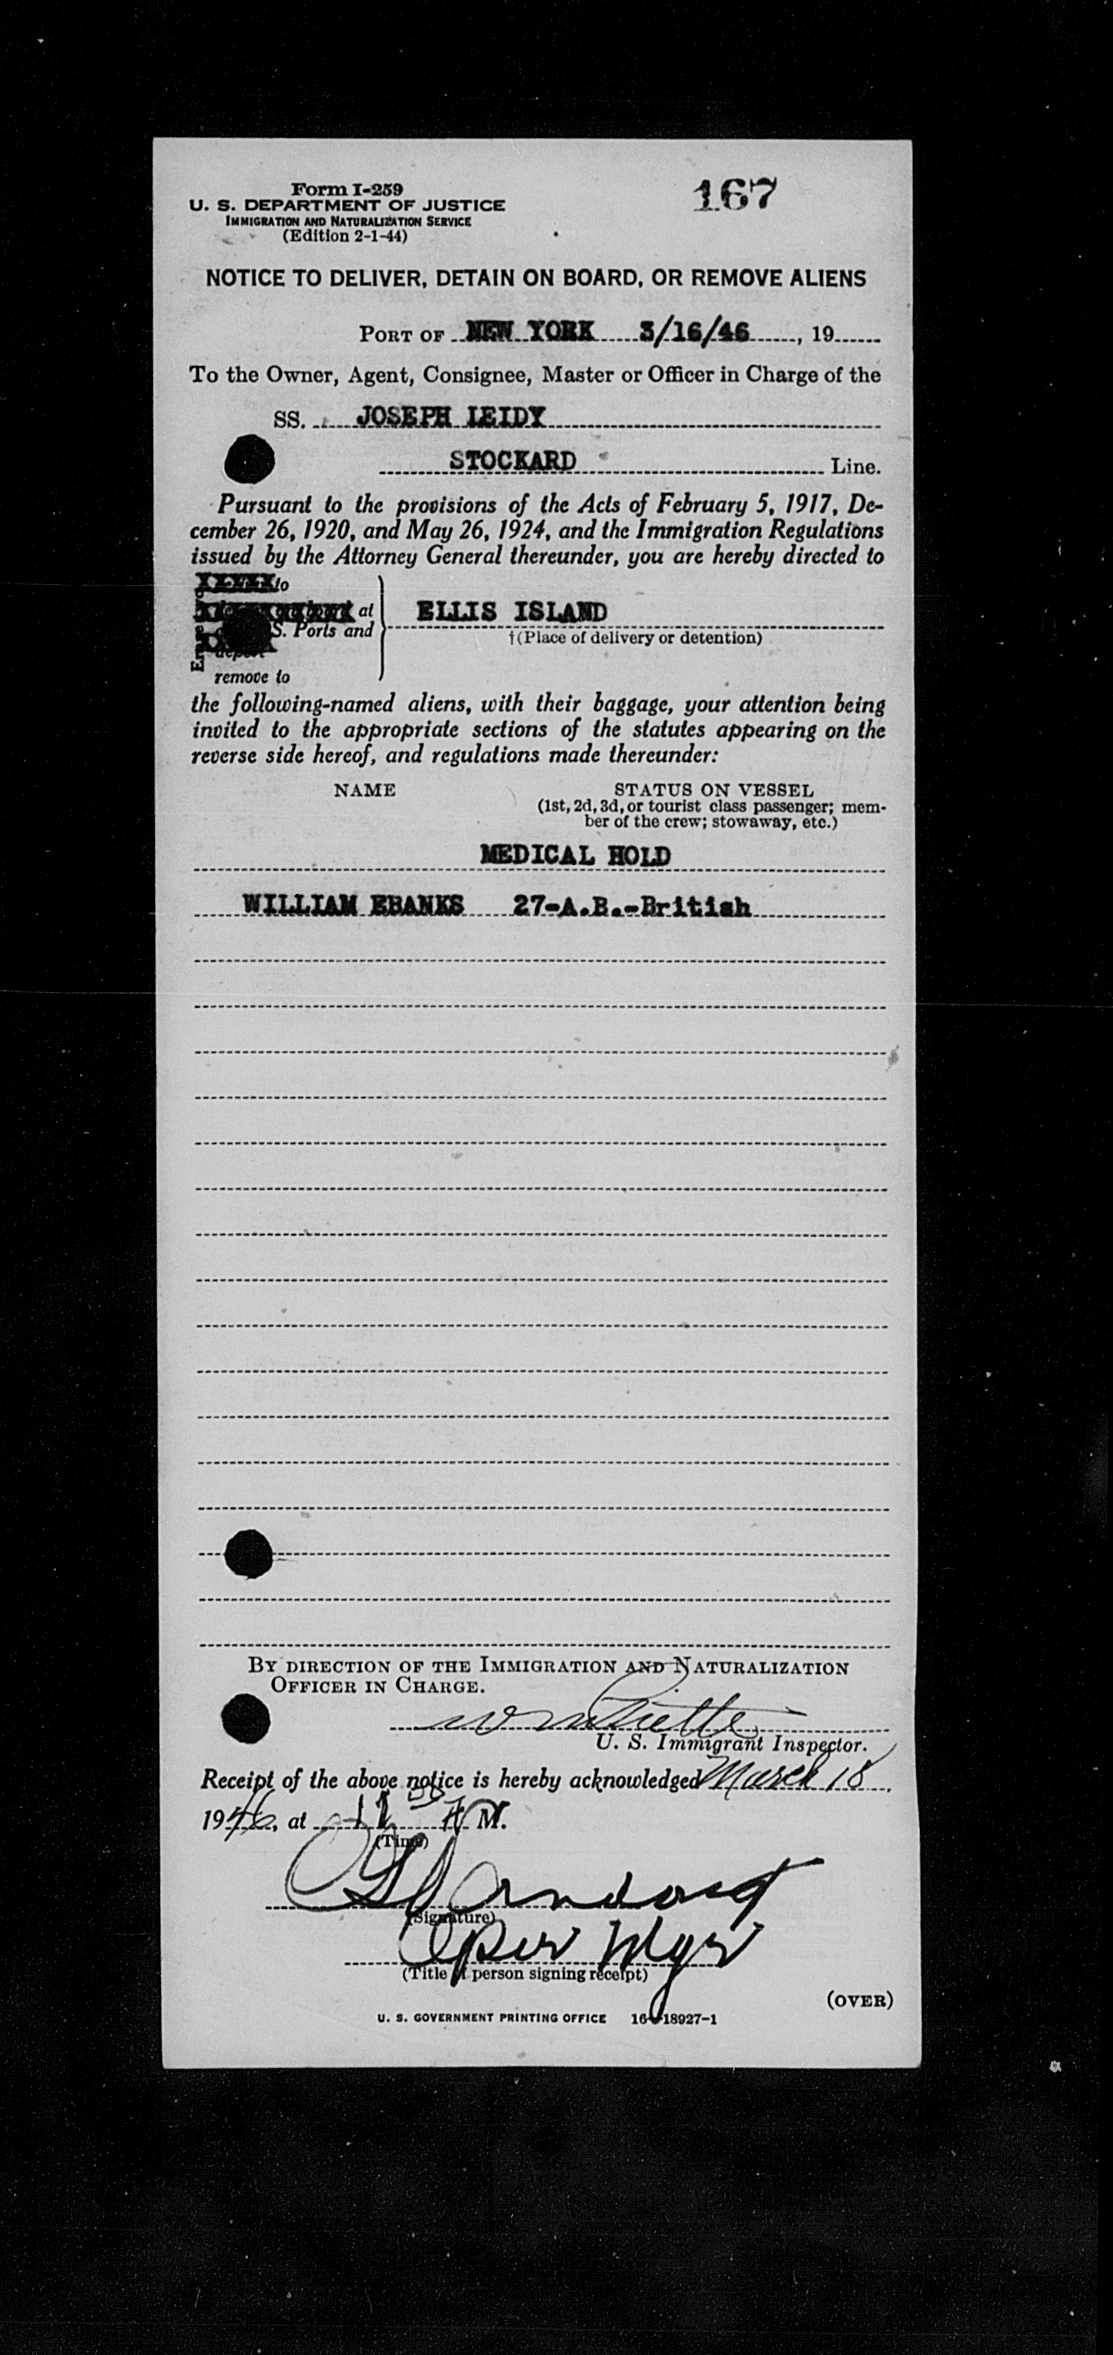 Form I-259
167
U. S. DEPARTMENT OF JUSTICE
IMMIGRATION AND NATURALIZATION SERVICE
(Edition 2-1-44)
NOTICE TO DELIVER, DETAIN ON BOARD, OR REMOVE ALIENS
PORT OF NEW YORK 3/16/46, 19
To the Owner, Agent, Consignee, Master or Officer in Charge of the
SS. JOSEPH LEIDY
STOCKARD Line.
Pursuant to the provisions of the Acts of February 5, 1917, De-
cember 26, 1920, and May 26, 1924, and the Immigration Regulations
issued by the Attorney General thereunder, you are hereby directed to
to
at
ELLIS ISLAND
S. Ports and
†(Place of delivery or detention)
remove to
the following-named aliens, with their baggage, your attention being
invited to the appropriate sections of the statutes appearing on the
reverse side hereof, and regulations made thereunder:
NAME STATUS ON VESSEL
(1st, 2d, 3d, or tourist class passenger; mem-
ber of the crew; stowaway, etc.)
MEDICAL HOLD
WILLIAM EBANKS 27-A.B.-British
BY DIRECTION OF THE IMMIGRATION AND NATURALIZATION
OFFICER IN CHARGE.
U. S. Immigrant Inspector.
Receipt of the above notice is hereby acknowledged March 18,
1946, at 11 A M.
(Time)
(Signature)
Oper Mgr
(Title of person signing receipt)
(OVER)
U. S. GOVERNMENT PRINTING OFFICE 16-18927-1